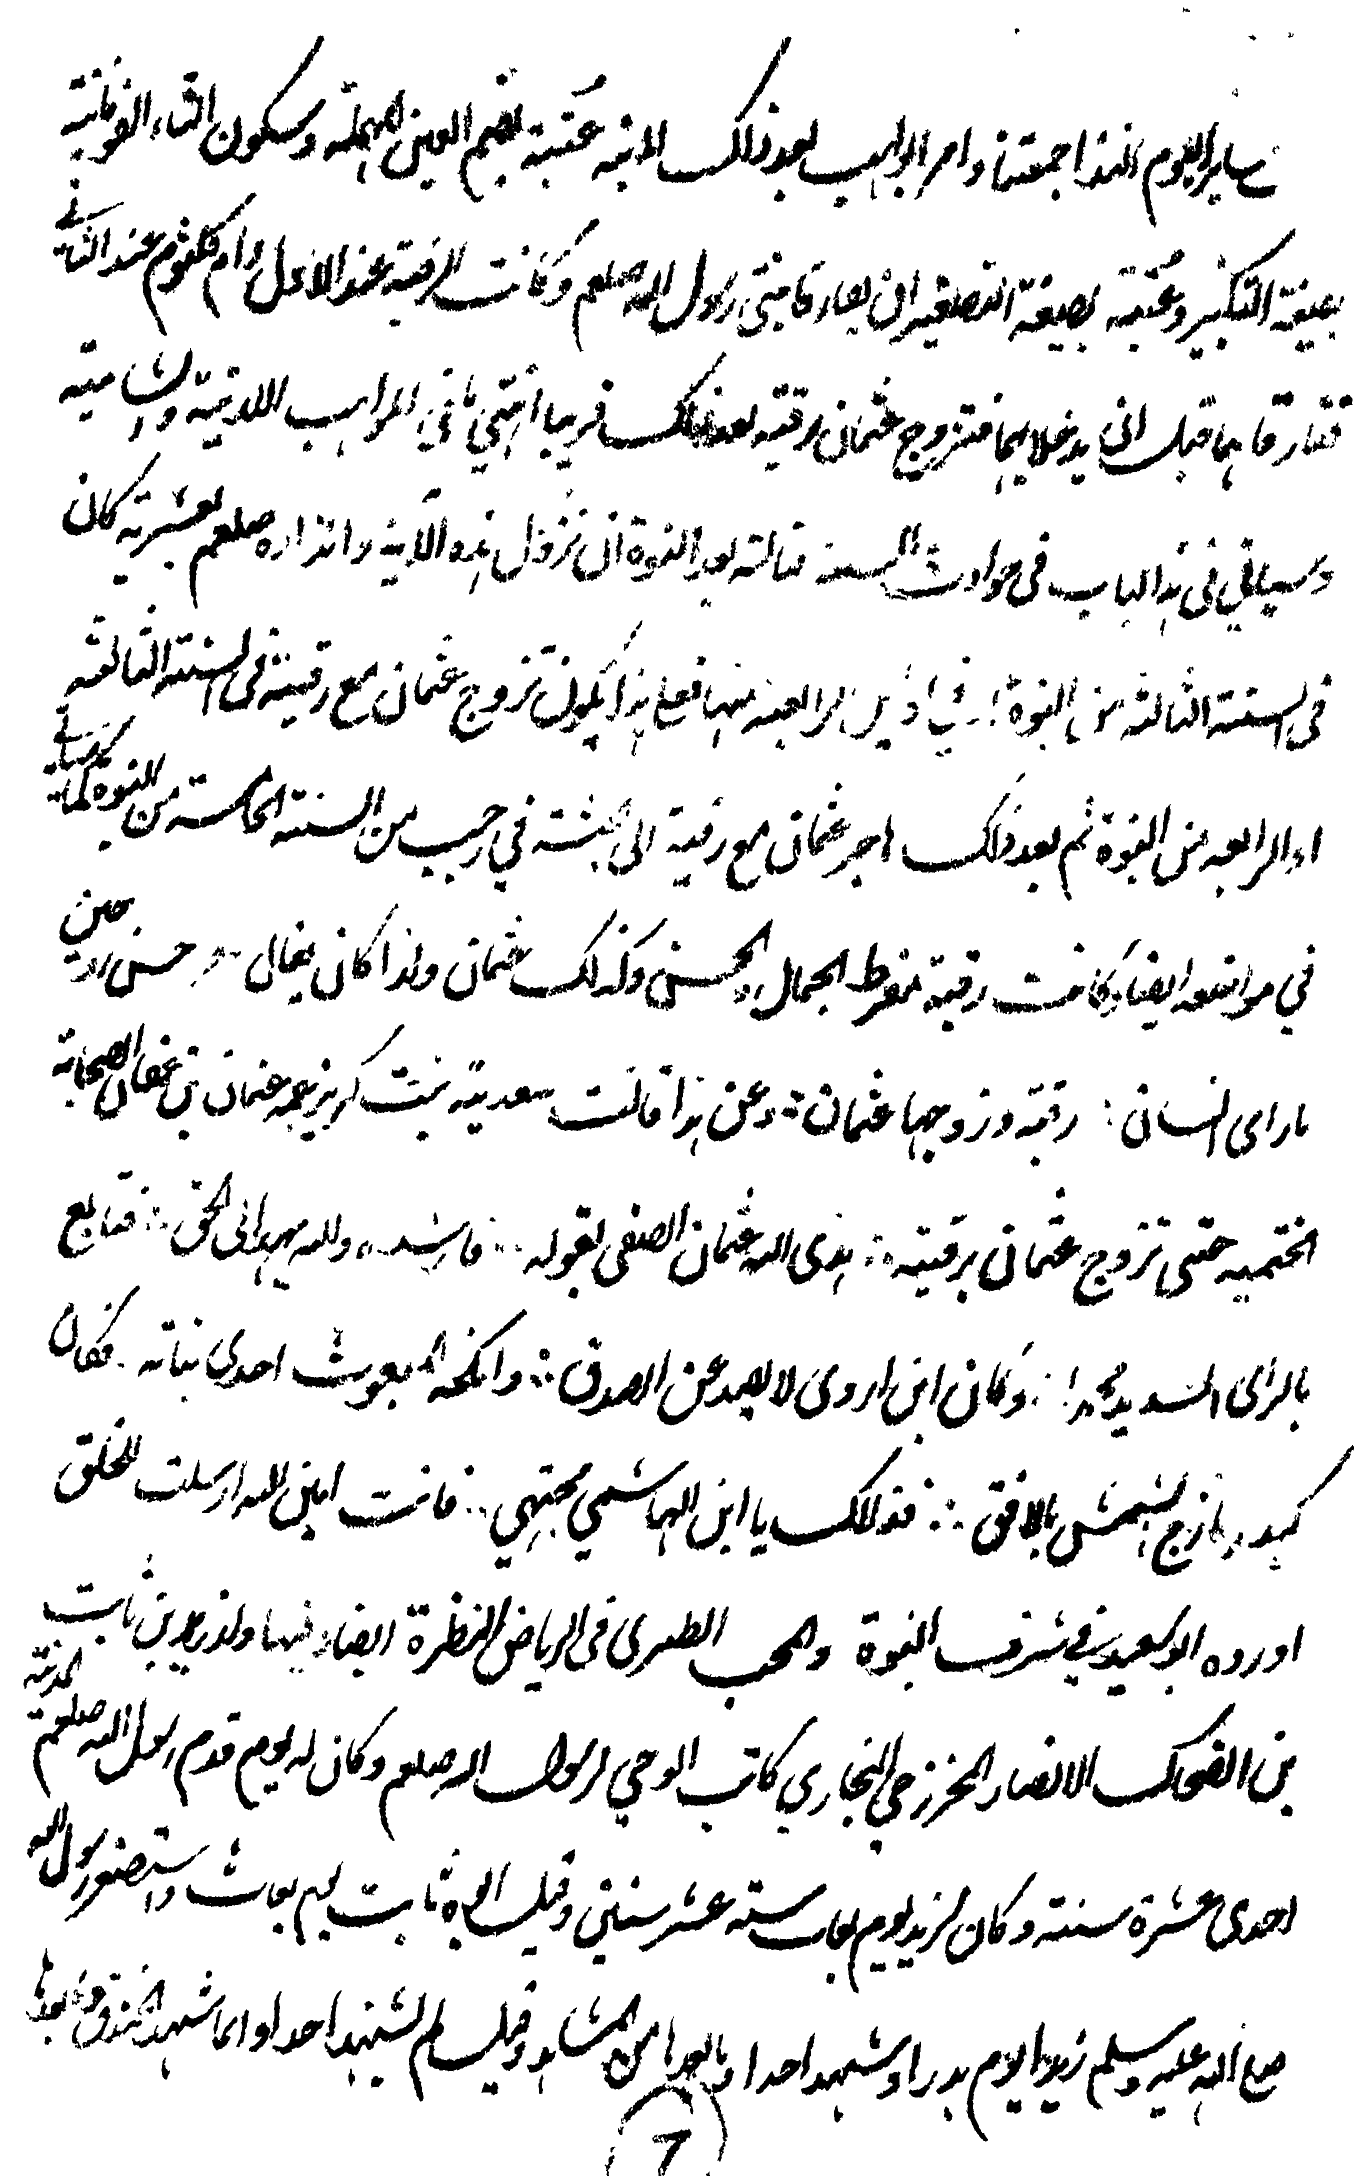 سایر الیوم الهذا جمعتنا وامر ابولهب بعد ذلك لابنه عُتبة بضم العین المهملة وسكون التاء الفوقانیة
بصیغة التكبیر وعُتیبة بصیغة التصغیر ان یفارقا بنتی رسول الله صلعم وكانت الرقیة عند الاول وام كلثوم عند الثانی
ففارقاهما قبل ان یدخلا بهما فتزوج عثمان رقیة بعد ذلك قریبا انتهی ما فی المواهب اللدنیة والشامیة
وسیاتی فی هذا الباب فی حوادث السنة ثالثة بعد النبوة ان نزول هذه الآیة وانذاره صلعم لعشیرته كان
فی السنة الثالثة من النبوة او فی اوایل الرابعة منها فعلی هذا یكون تزوج عثمان مع رقیة فی السنة الثالثة
او الرابعة من النبوة ثم بعد ذلك هاجر عثمان مع رقیة الی الحبشة فی رجب من السنة الخامسة من النبوة كما سیاتی
فی مواضعه ایضا وكانت رقیة مفرط الجمال والحسن وكذلك عثمان ولذا كان یقال احسن زوجین
ما رای انسان : رقیة وزوجها عثمان ؛ وعن هذا قالت سعدیة بنت كریز عمة عثمان بن عفان الصحابة
حتی تزوج عثمان برقیة ؛ هدی الله عثمان الصفی بقوله ؛ فارشده والله یهدی الی الحق ؛ فتابع
بالرای السدید محمدا ؛ وكان ابن اروی لا یصد عن الصدق ؛ وانكحه المبعوث احدی بناته ؛ فكان
كبدر مازج الشمس بالافق ؛ فذلك یا ابن الهاشمی مهجتی ؛ فانت امین الله ارسلت للخلق
اورده ابو سعید فی شرف النبوة والمحب الطبری فی الریاض النظرة ایضا وفیها ولد زید بن ثابت
بن الضحاك الانصار الخزرجی النجاری كاتب الوحی لرسول الله صلعم وكان له یوم قدم رسول الله صلعم المدینة
احدی عشرة سنة وكان لزید یوم بعاث ستة عشر سنین وقیل ابوه ثابت یوم بعاث واستصغر رسول الله
صلی الله علیه وسلم زیدا یوم بدر وشهد احدا وما بعدها من المشاهد وقیل لم یشهد احدا وانما شهد الخندق وما بعدها
7